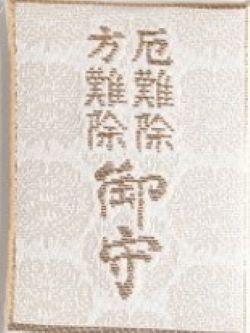 厄難除
方難除
御守